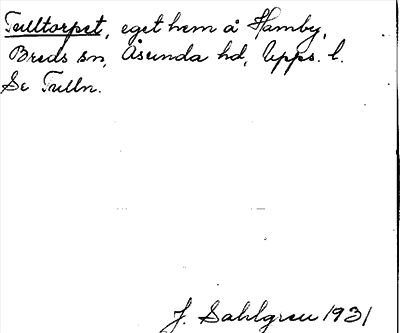 Tulltorpet, eget hem å Hamby,
Breds sn, Åsunda hd, Upps. l.
Se Tulln.
J. Sahlgren 1931